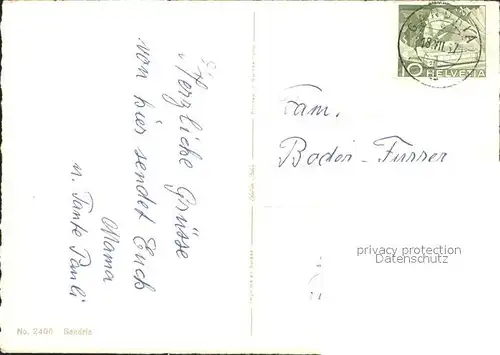 Herzliche Grüsse
von hier sendet Euch
Mama
u. Tante Pauli
GANDRIA
18.VII.57
10 HELVETIA
Fam.
Boder-Furrer
privacy protection
Datenschutz
No. 2496 Gandria